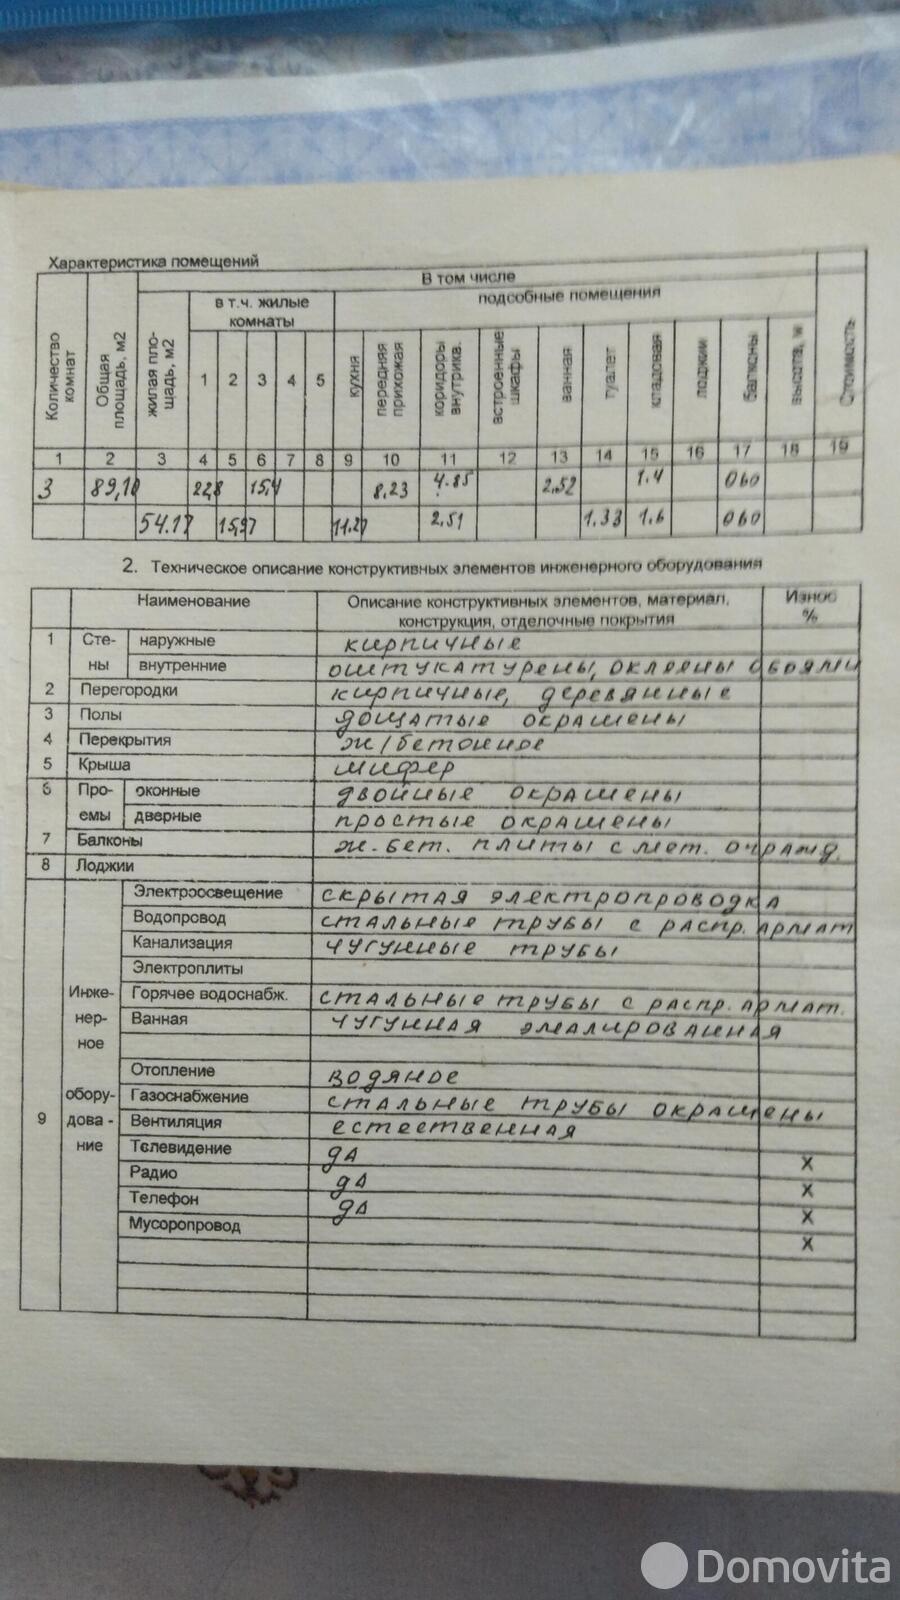 Характеристика помещений
В том числе
в т.ч. жилые комнаты
подсобные помещения
Количество комнат
Общая площадь, м2
жилая пло-щадь, м2
1 2 3 4 5
кухня
передняя прихожая
коридоры внутрикв.
встроенные шкафы
ванная
туалет
кладовая
лоджии
балконы
высота, м
Стоимость
1 2 3 4 5 6 7 8 9 10 11 12 13 14 15 16 17 18 19
3 89,10 22,8 15,4 8,23 4.85 2,52 1.4 060
54.17 15,97 11.27 2,51 1.33 1.6 060
2. Техническое описание конструктивных элементов инженерного оборудования
Наименование Описание конструктивных элементов, материал, Износ
конструкция, отделочные покрытия %
1 Сте- наружные кирпичные
ны внутренние оштукатурены, оклеены обоями
2 Перегородки кирпичные, деревянные
3 Полы дощатые окрашены
4 Перекрытия ж/бетонное
5 Крыша шифер
6 Про- оконные двойные окрашены
емы дверные простые окрашены
7 Балконы ж.бет. плиты с мет. огражд.
8 Лоджии
Электроосвещение скрытая электропроводка
Водопровод стальные трубы с распр. армат
Канализация чугунные трубы
Электроплиты
Инже- Горячее водоснабж. стальные трубы с распр. армат.
нер- Ванная чугунная эмалированная
ное
Отопление водяное
обору- Газоснабжение стальные трубы окрашены
9 дова - Вентиляция естественная
ние Телевидение да X
Радио да X
Телефон да X
Мусоропровод X
Domovita